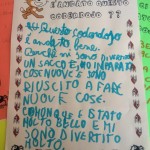 È ANDATO QUESTO
CODERDOJO ??
QUESTO CODERDOJO
È ANDATO BENE.
PERCHÉ MI SONO DIVERTITO
UN SACCO E HO IMPARATO
COSE NUOVE E SONO
RIUSCITO A FARE
NUOVE COSE.
COMUNQUE È STATO
MOLTO BELLO E MI
SONO DIVERTITO
MOLTO